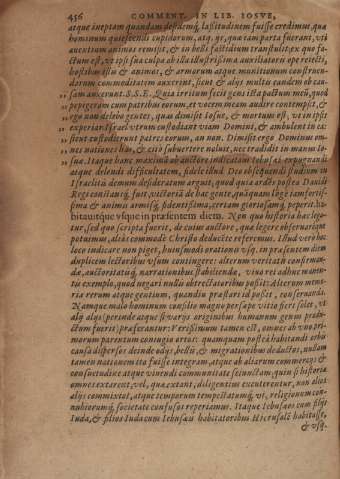 456 COMMENT. IN LIB. IOSVE,
atque ineptam quandam desidemq́; lasitudinem fuisse credimus, qua
hominum quiescendi cupidorum, atq́; ijs, qua iam parta fuerant, vti
auentium animos remisit, & in belli fastidium transtulit: ex quo fa-
ctum est, vt ipsi sua culpa ab illa illustrissima auxiliatoris ope reiecti,
hostibus illis & animos, & armorum atque munitionum construen-
darum commoditatem auxerint, sicut & alijs multis eandem ob cau-
sam auxerunt. S.S.E. Quia irritum fecit gens ista pactum meũ, quod
pepigeram cum patribus eorum, et vocem meam audire contempsit, &
ego non delebo gentes, quas dimisit Iosue, & mortuus est, vt in ipsis
experiar Israel vtrum custodiant viam Domini, & ambulent in ea
sicut custodierunt patres eorum, an non. Dimisit ergo Dominus om-
nes nationes has, & cito subuertere noluit, nec tradidit in manu Io-
sue. Itaque hanc maximè ab auctore indicatam Iebusæi expugnandi
atque delendi difficultatem, fidele illud Deo obsequendi studium in
Israelitis demum desideratum arguit, quod quia arcẽo postea Dauidi
Regi constantq́; fuit, victoriã de hac gente, quãquam longè instructis-
sima & animis armisq́; fidentissima, certam gloriosamq́; peperit. ha-
bitauitque vsque in præsentem diem. Non quo historia hac lege-
tur, sed quo scripta fuerit, de cuius auctore, quæ legere obseruarique
potuimus, aliàs commodè Christo dedecite referemus. Illud verò hoc
loco indicare non piget, huiusmodi orationis vsus, in præsentem diem
duplicem lectoribus vsum contingere: alterum veritatis confirman-
da, auctoritatisq́; narrationibus stabilienda, viuo rei adhuc manen-
tis exemplo, quod negari nullis obtrectatoribus possit: Alterum memo-
ria rerum atque gentium, quandiu præstare id possit, conseruandi.
Namque malo hominum consilio magno persæpe vitio fieri solet, vt
alij alijs (perinde atque si varijs originibus humanum genus produ-
ctum fuerit) præferantur: Verissimum tamen est, omnes ab vno pri-
morum parentum coniugio ortos: quamquam posteà habitandi orbis
causa dispersos deinde odijs, bellis, & migrationibus deductos, nullam
tamen nationem ita fuisse integram, atque ab aliarum commercijs &
consuetudine atque viuendi communitate seiunctam, quin si historia
omnes extarent, vel, quæ extant, diligentius excuterentur, non alios
alijs commixtos, atque temporum tempestatumq́; vi, religionum con-
nubiorumq́; societate confusos reperiamus. Itaque Iebusæos cum filijs
Iuda, & filios Iuda cum Iebusæis habitatoribus Hierusalẽ habitasse,
& vsq́;